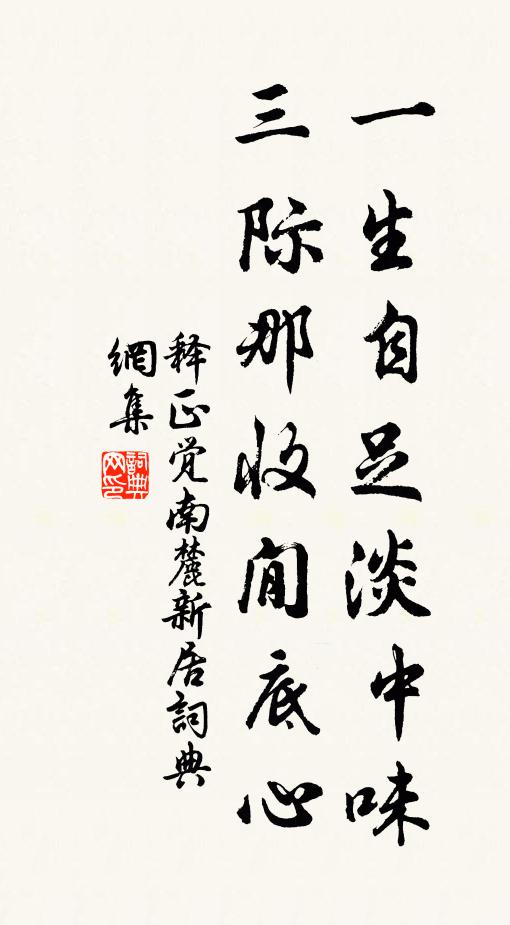 一生自足淡中味
三际那收闲底心
释正觉南麓新居詞典
網集
詞典网印